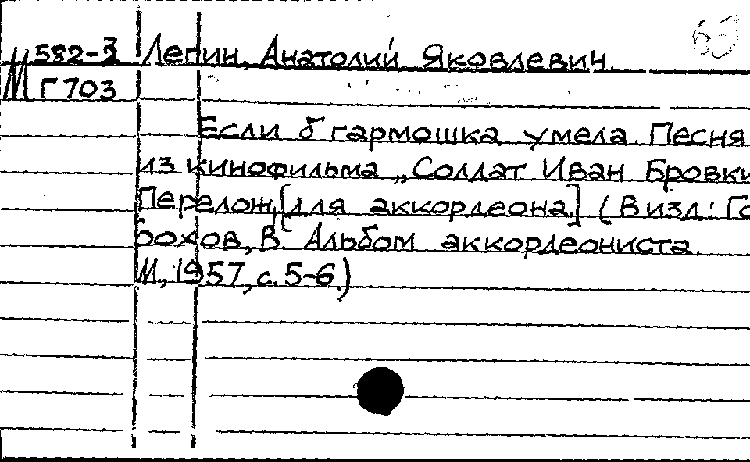 М 582-3 Лепин, Анатолий Яковлевич
Г 703
Если б гармошка умела. Песня
из кинофильма „Солдат Иван Бровки
Перелож. [для аккордеона] (В изд.: Го
бохов, В Альбом аккордеониста
М., 1957, с. 5-6.)